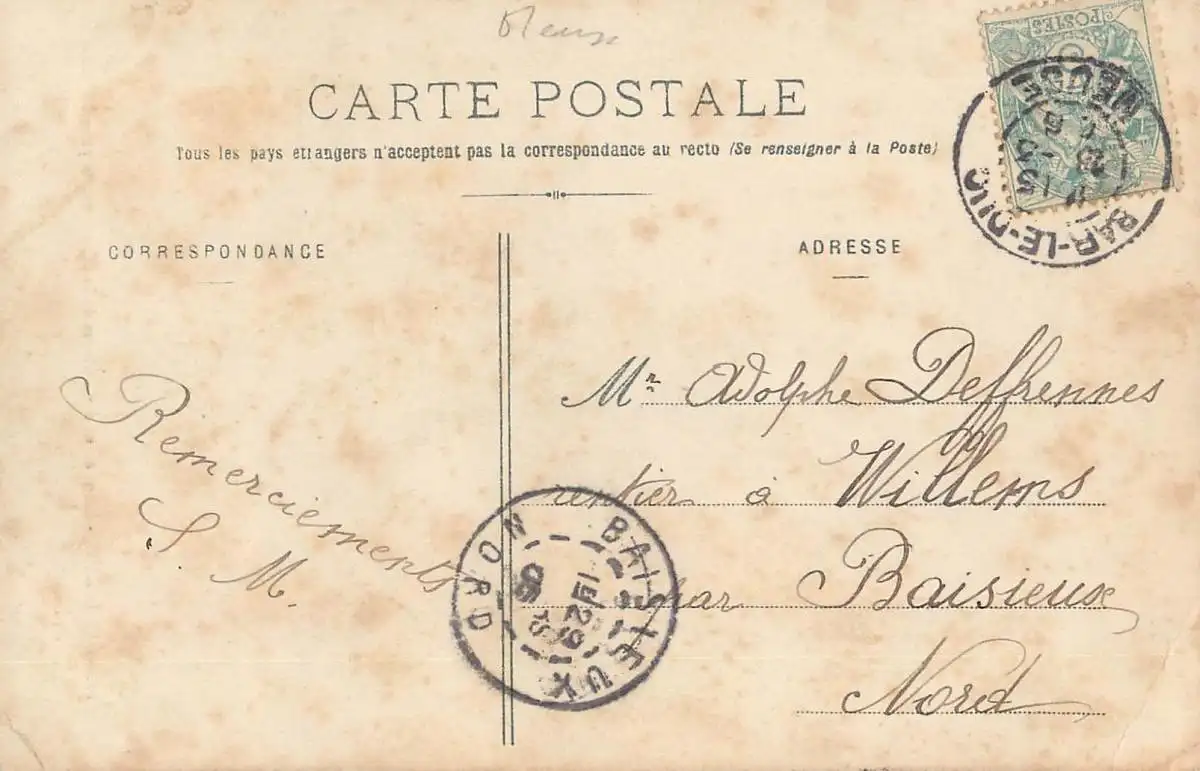 Meuse
CARTE POSTALE
Tous les pays étrangers n'acceptent pas la correspondance au recto (Se renseigner à la Poste)
POSTES
BAR-LE-DUC
MEUSE
CORRESPONDANCE
ADRESSE
Remerciements
S. M.
Mr Adolphe Deffrennes
rentier à Willems
par Baisieux
Nord
BAISIEUX
NORD
29
05